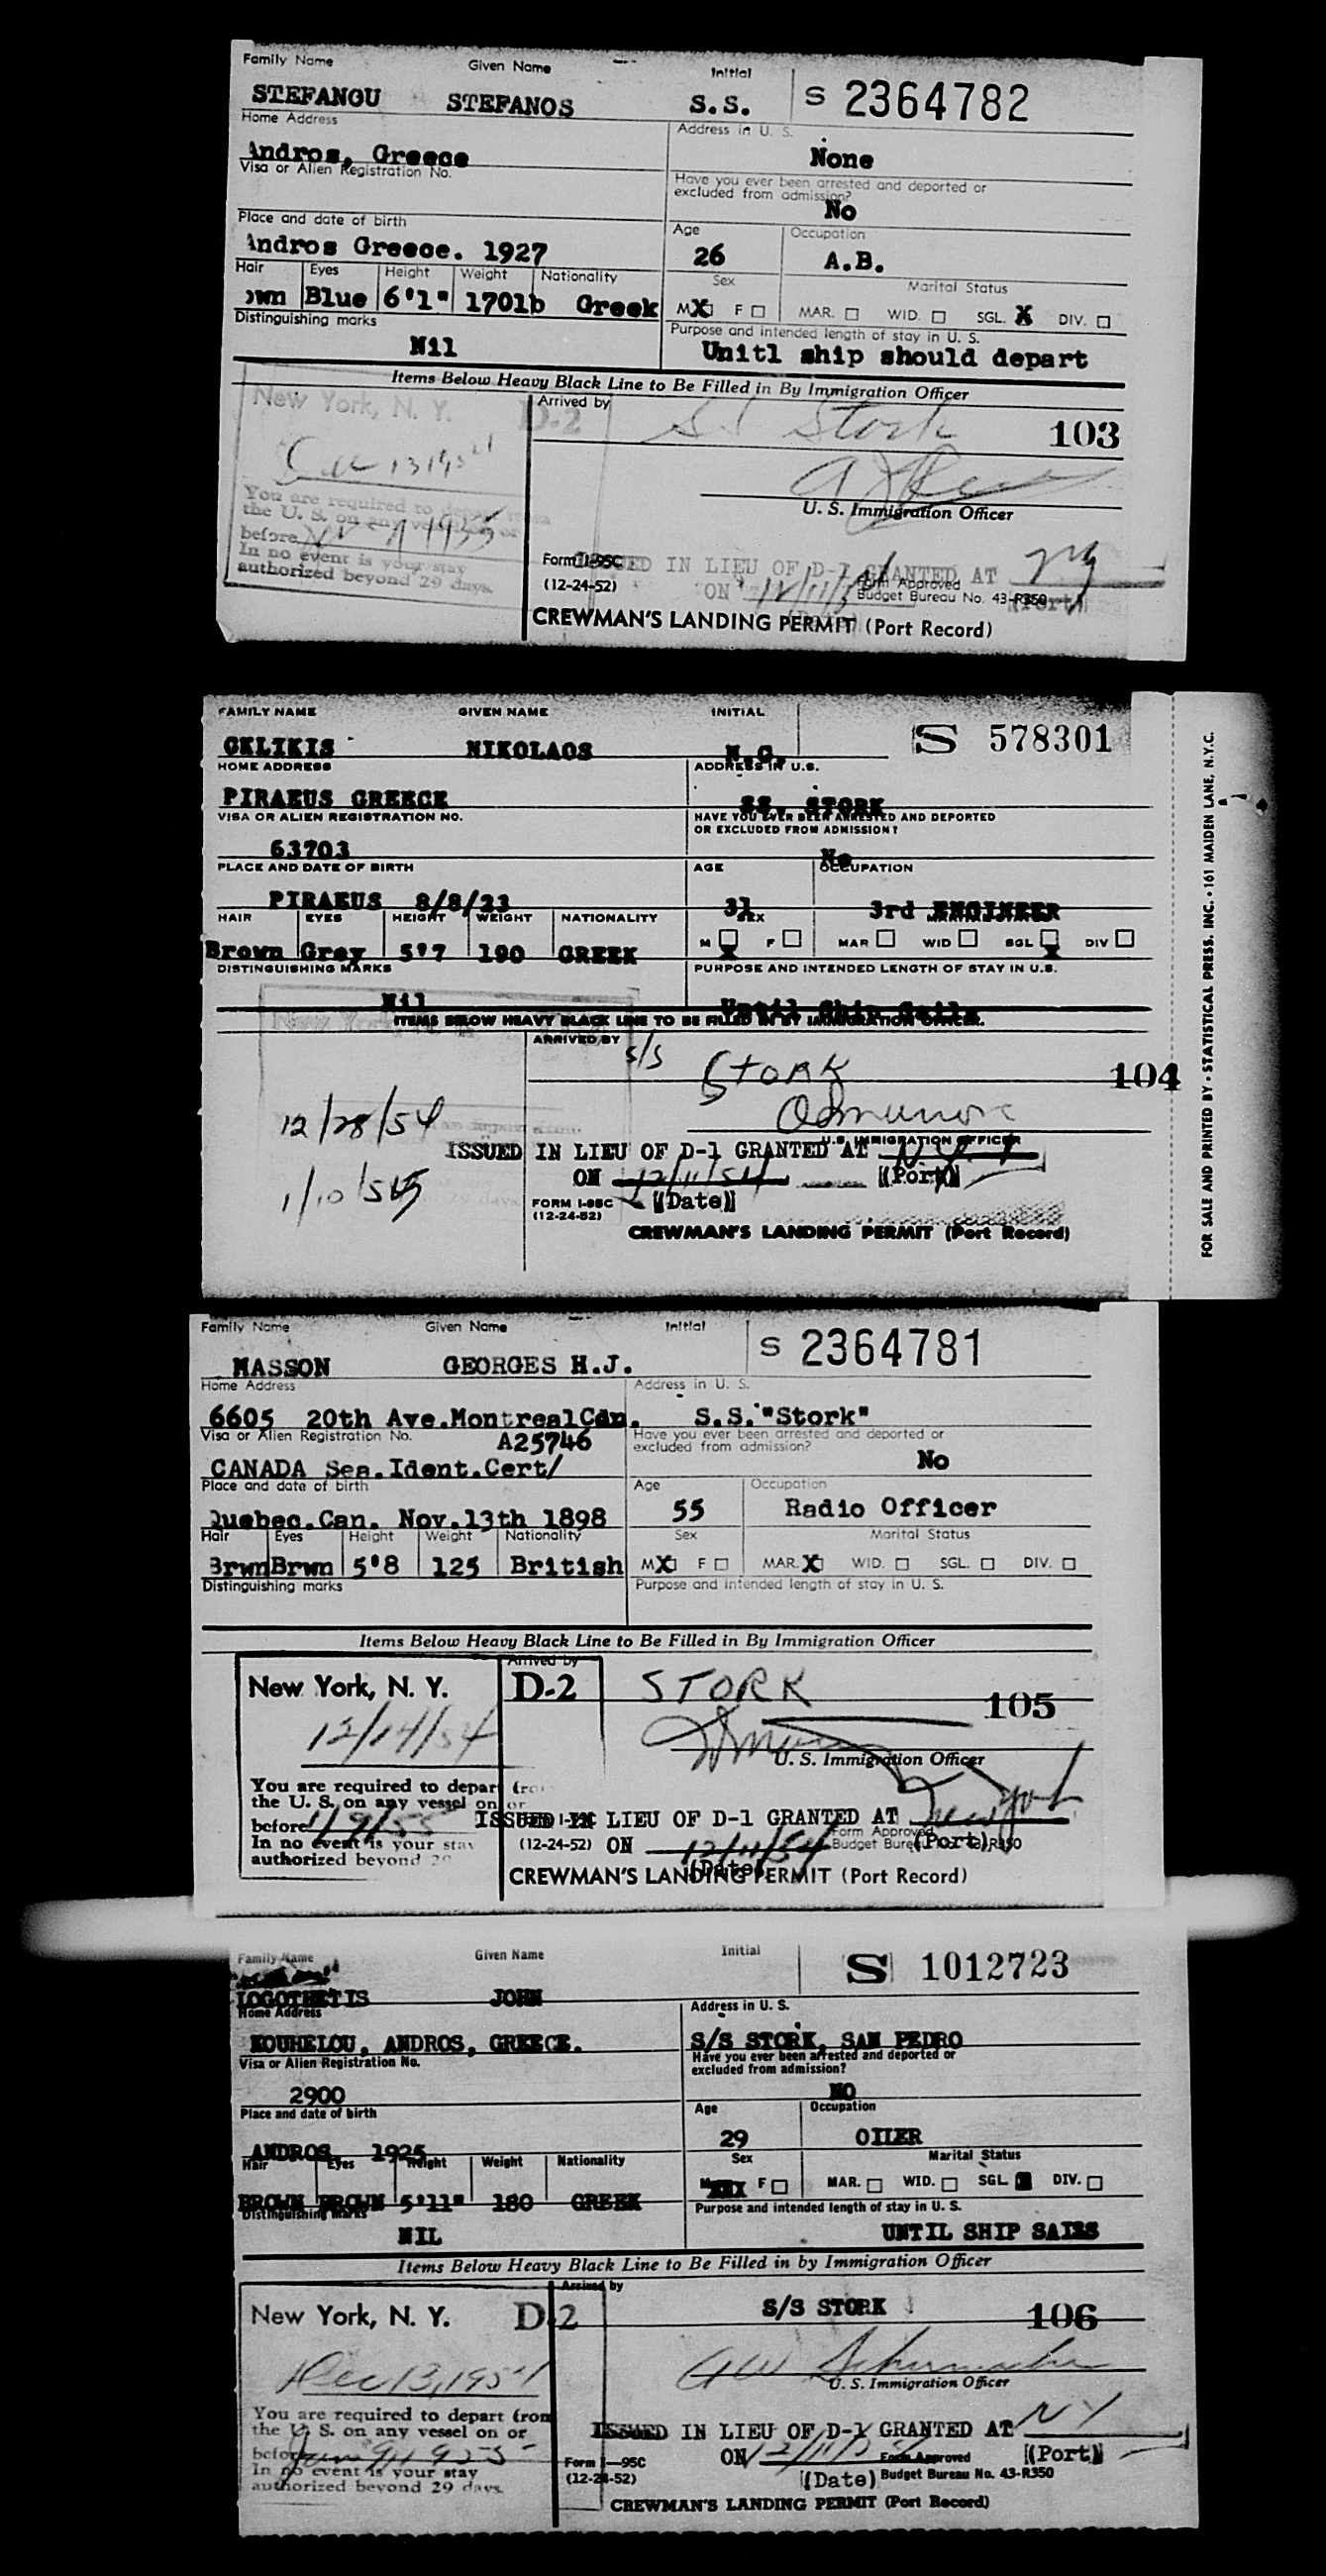 Family Name Given Name Initial
STEFANOU STEFANOS S.S. S 2364782
Home Address Address in U. S.
Andros, Greece None
Visa or Alien Registration No. Have you ever been arrested and deported or
excluded from admission?
No
Place and date of birth Age Occupation
Andros Greece. 1927 26 A.B.
Hair Eyes Height Weight Nationality Sex Marital Status
own Blue 6'1" 170lb Greek M X F MAR. WID. SGL. X DIV.
Distinguishing marks Purpose and intended length of stay in U. S.
Nil Unitl ship should depart
Items Below Heavy Black Line to Be Filled in By Immigration Officer
New York, N. Y. D-2 Arrived by SS Stork 103
13 1954
U. S. Immigration Officer
You are required to depart from
the U. S. on any vessel on or
before 1955
In no event is your stay
authorized beyond 29 days.
Form I-95C ISSUED IN LIEU OF D-1 GRANTED AT NY
(12-24-52) ON 12/11/54 Form Approved
Budget Bureau No. 43-R350 (Port)
CREWMAN'S LANDING PERMIT (Port Record)
FAMILY NAME GIVEN NAME INITIAL
NIKOLAOS N.G. S 578301
HOME ADDRESS ADDRESS IN U.S.
PIRAEUS GREECE SS. STORK
VISA OR ALIEN REGISTRATION NO. HAVE YOU EVER BEEN ARRESTED AND DEPORTED
OR EXCLUDED FROM ADMISSION?
63703 No
PLACE AND DATE OF BIRTH AGE OCCUPATION
PIRAEUS 8/8/23 31 3rd ENGINEER
HAIR EYES HEIGHT WEIGHT NATIONALITY SEX MARITAL STATUS
Brown Grey 5'7 190 GREEK M X F MAR WID SGL X DIV
DISTINGUISHING MARKS PURPOSE AND INTENDED LENGTH OF STAY IN U.S.
Nil Until Ship Sails
ITEMS BELOW HEAVY BLACK LINE TO BE FILLED IN BY IMMIGRATION OFFICER.
ARRIVED BY S/S STORK 104
12/28/54
U.S. IMMIGRATION OFFICER
ISSUED IN LIEU OF D-1 GRANTED AT N Y
ON 12/11/54 (Port)
1/10/55
FORM I-95C (Date)
(12-24-52)
CREWMAN'S LANDING PERMIT (Port Record)
FOR SALE AND PRINTED BY • STATISTICAL PRESS. INC. • 161 MAIDEN LANE, N.Y.C.
Family Name Given Name Initial
MASSON GEORGES H.J. S 2364781
Home Address Address in U. S.
6605 20th Ave.Montreal Cdn. S.S."Stork"
Visa or Alien Registration No. A25746 Have you ever been arrested and deported or
excluded from admission?
CANADA Sea.Ident.Cert/ No
Place and date of birth Age Occupation
Quebec.Can. Nov.13th 1898 55 Radio Officer
Hair Eyes Height Weight Nationality Sex Marital Status
Brwn Brwn 5'8 125 British M X F MAR. X WID. SGL. DIV.
Distinguishing marks Purpose and intended length of stay in U. S.
Items Below Heavy Black Line to Be Filled in By Immigration Officer
Arrived by
New York, N. Y. D-2 STORK 105
12/14/54
U. S. Immigration Officer
You are required to depart from
the U. S. on any vessel on or
before 1/9/55 ISSUED IN LIEU OF D-1 GRANTED AT New York
In no event is your stay (12-24-52) ON 12/11/54 Form Approved (Port)
authorized beyond 29 Budget Bureau No. 43-R350
(Date)
CREWMAN'S LANDING PERMIT (Port Record)
Family Name Given Name Initial
LOGOTHETIS JOHN S 1012723
Home Address Address in U. S.
KOUHELOU, ANDROS, GREECE. S/S STORK, SAN PEDRO
Visa or Alien Registration No. Have you ever been arrested and deported or
excluded from admission?
2900 NO
Place and date of birth Age Occupation
ANDROS, 1925 29 OILER
Hair Eyes Height Weight Nationality Sex Marital Status
BROWN BROWN 5'11" 180 GREEK M XXX F MAR. WID. SGL. DIV.
Distinguishing marks Purpose and intended length of stay in U. S.
NIL UNTIL SHIP SAILS
Items Below Heavy Black Line to Be Filled in by Immigration Officer
Arrived by
New York, N. Y. D-2 S/S STORK 106
Dec 13, 1954
U. S. Immigration Officer
You are required to depart from
the U. S. on any vessel on or ISSUED IN LIEU OF D-1 GRANTED AT NY
before Jan 9 1955 ON 12/11/54 Form Approved (Port)
In no event is your stay Form I—95C
authorized beyond 29 days (12-24-52) (Date) Budget Bureau No. 43-R350
CREWMAN'S LANDING PERMIT (Port Record)